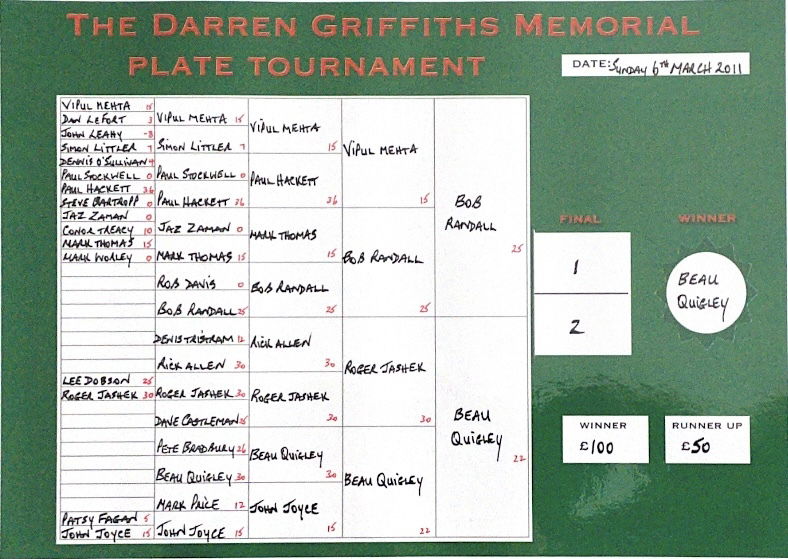 THE DARREN GRIFFITHS MEMORIAL
PLATE TOURNAMENT
DATE: SUNDAY 6TH MARCH 2011
VIPUL MEHTA 15
DAN LEFORT 3
JOHN LEAHY -8
SIMON LITTLER 7
DENNIS O'SULLIVAN 4
PAUL STOCKWELL 0
PAUL HACKETT 36
STEVE BARTROPP 0
JAZ ZAMAN 0
CONOR TREACY 10
MARK THOMAS 15
MARK WORLEY 0
LEE DOBSON 25
ROGER JASHEK 30
PATSY FAGAN 5
JOHN JOYCE 15
VIPUL MEHTA 15
SIMON LITTLER 7
PAUL STOCKWELL 0
PAUL HACKETT 36
JAZ ZAMAN 0
MARK THOMAS 15
ROB DAVIS 0
BOB RANDALL 25
DENIS TRISTRAM 12
RICK ALLEN 30
ROGER JASHEK 30
DAVE CASTLEMAN
PETE BRADBURY 26
BEAU QUIGLEY 30
MARK PRICE 12
JOHN JOYCE 15
VIPUL MEHTA
15
PAUL HACKETT
36
MARK THOMAS
15
BOB RANDALL
25
RICK ALLEN
30
ROGER JASHEK
30
BEAU QUIGLEY
30
JOHN JOYCE
15
VIPUL MEHTA
15
BOB RANDALL
25
ROGER JASHEK
30
BEAU QUIGLEY
22
BOB
RANDALL
25
BEAU
QUIGLEY
22
FINAL
1
2
WINNER
BEAU
QUIGLEY
WINNER
£100
RUNNER UP
£50